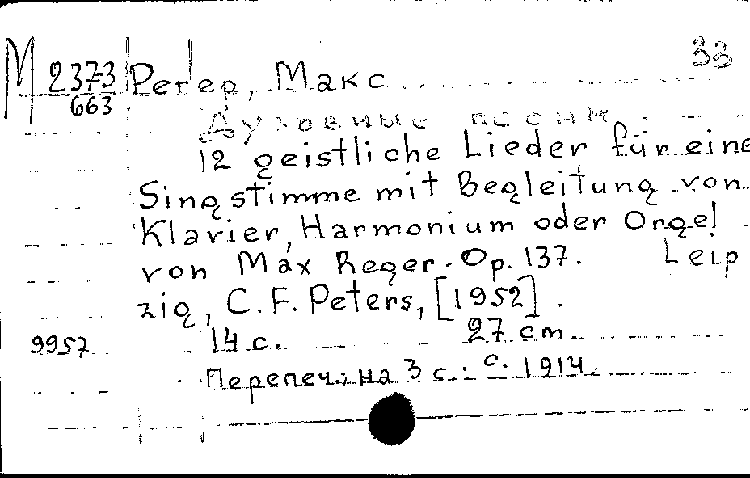 33
М 2373 Регер, Макс
663
Духовные песни
12 geistliche Lieder für eine
Singstimme mit Begleitung von
Klavier, Harmonium oder Orgel
von Max Reger. Op. 137. Leip
zig, C. F. Peters, [1952].
9957 14 с. 27 cm.
Перепеч.: на 3 с.: с. 1914.